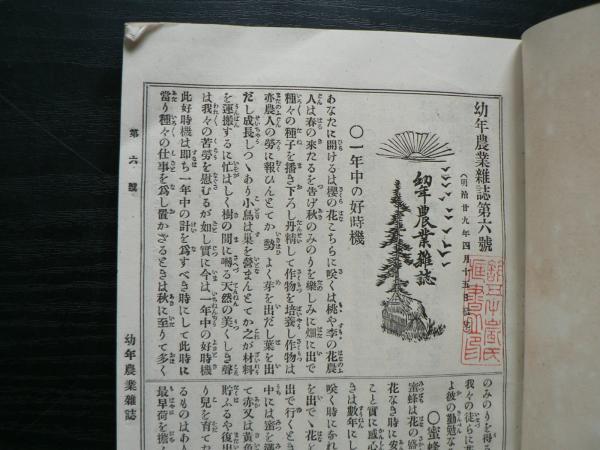 幼年農業雜誌第六號
(明治廿九年四月十五日發兌)
幼年農業雜誌
〇一年中の好時機
あなたに開けるは櫻の花こちらに咲くは桃や李の花農
人は春の來たるを告げ秋のみのりを樂しみに畑に出で
種々の種子を播き下ろし丹精して作物を培養し作物は
亦農人の勞に報ひんとてか勢よく芽を出だし葉を出
だし成長しつゝあり小鳥は巢を營まんとてか之が材料
を運搬するに忙はしく樹の間に囀る天然の美くしき聲
は我々の苦勞を慰むるが如し實に今は一年中の好時機
此好時機は即ち一年中の計を爲すべき時にして此時に
當り種々の仕事を爲し置かざるときは秋に至りて多く
のみのりを得る
我々の徒らに花
よ彼の勤勉な
〇蜜蜂
蜜蜂は花の盛
花なき時に安
こと實に感心
きは數年にし
咲く時にかれ
を出で、花を
出で行くとき
中には蜜を滿
て亦又は黃色
貯ふるや復出
り兒を育て
るものはあり
最早荷を攜
第六號
幼年農業雜誌